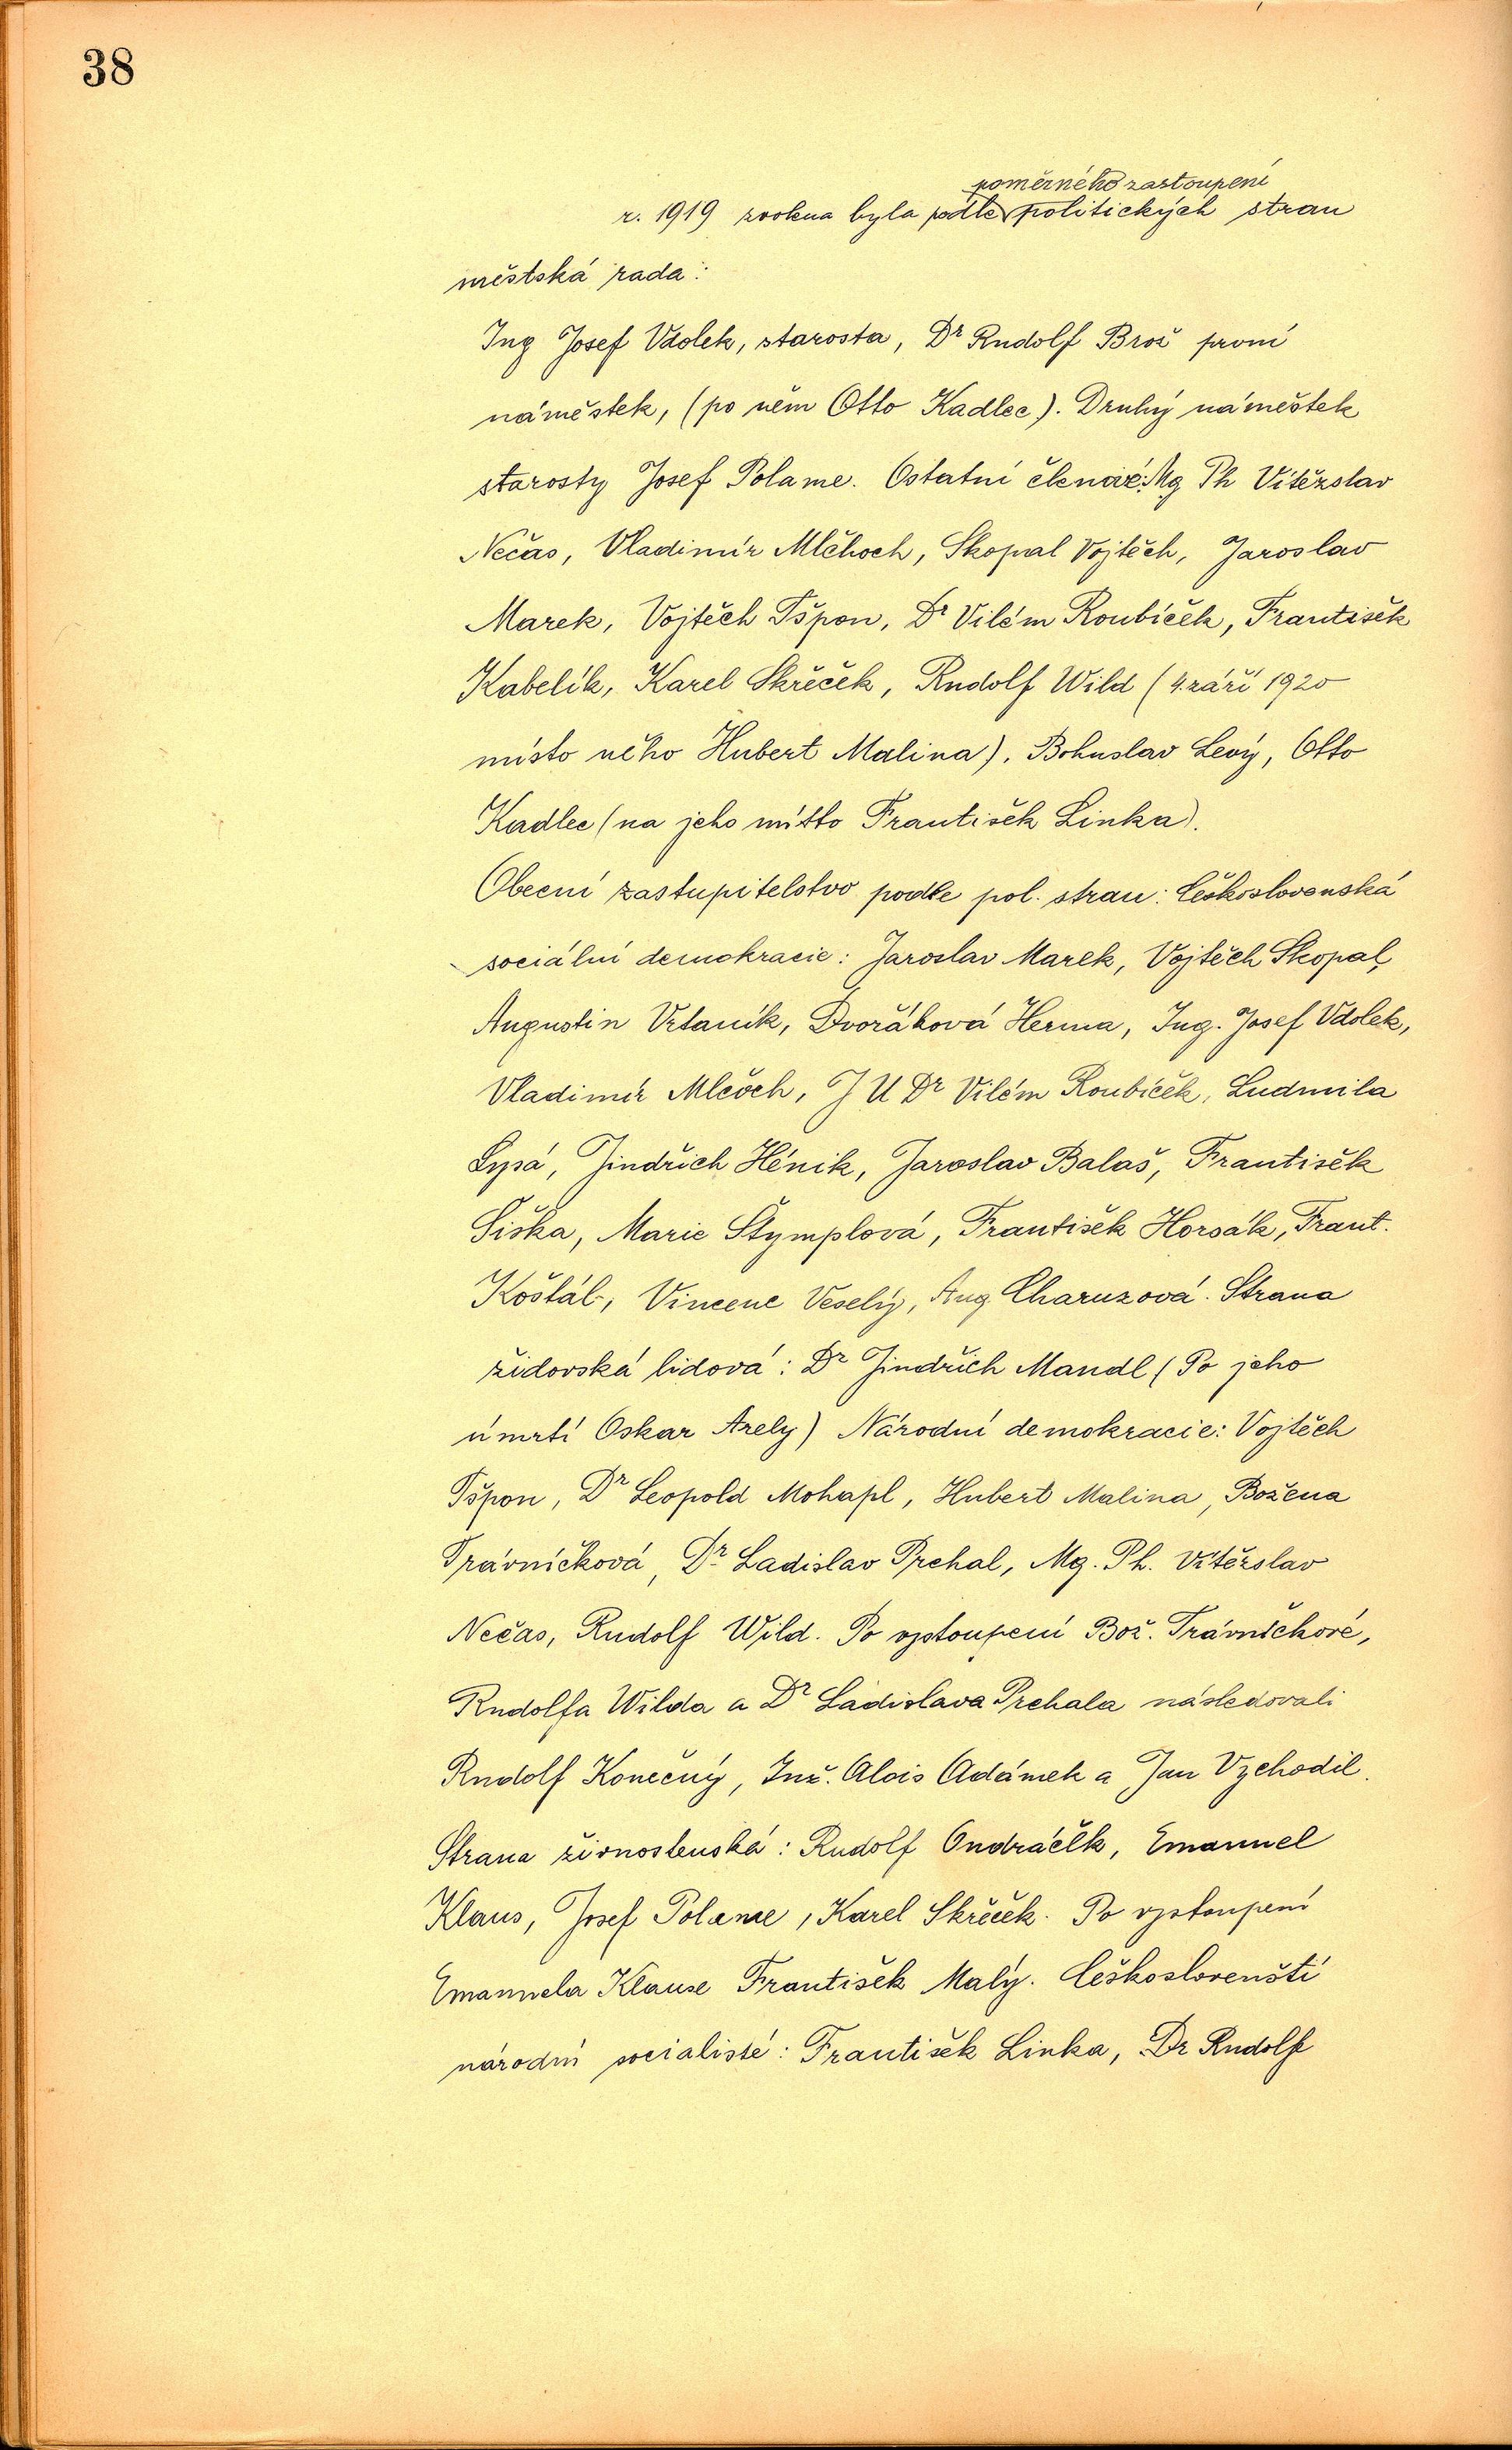 38
poměrného zastoupení
r. 1919 zvolena byla podle politických stran
městská rada:
Ing Josef Vdolek, starosta, Dr Rudolf Brož první
náměstek, (po něm Otto Kadlec). Druhý náměstek
starosty Josef Polame. Ostatní členové: Mg Ph Vítězslav
Nečas, Vladimír Mlčhoch, Skopal Vojtěch, Jaroslav
Marek, Vojtěch Tšpon, Dr Vilém Roubíček, František
Kabelík, Karel Skřeček, Rudolf Wild (4. září 1920
místo něho Hubert Malina), Bohuslav Levý, Otto
Kadlec (na jeho místo František Linka).
Obecní zastupitelstvo podle pol. stran: Československá
sociální demokracie: Jaroslav Marek, Vojtěch Skopal,
Augustin Vrtaník, Dvořáková Herma, Ing. Josef Vdolek,
Vladimír Mlčoch, JUDr Vilém Roubíček, Ludmila
Lysá, Jindřich Hénik, Jaroslav Balaš, František
Šiška, Marie Štymplová, František Horsák, Frant.
Košťál, Vincenc Veselý, Aug. Charuzová. Strana
židovská lidová: Dr Jindřich Mandl (Po jeho
úmrtí Oskar Arely) Národní demokracie: Vojtěch
Tšpon, Dr Leopold Mohapl, Hubert Malina, Božena
Trávníčková, Dr Ladislav Prehal, Mg. Ph. Vítězslav
Nečas, Rudolf Wild. Po vystoupení Bož. Trávníčkové,
Rudolfa Wilda a Dr Ladislava Prehala následovali
Rudolf Konečný, Inž. Alois Adámek a Jan Vychodil.
Strana živnostenská: Rudolf Ondráček, Emanuel
Klaus, Josef Polame, Karel Skřeček. Po vystoupení
Emanuela Klause František Malý. Českoslovenští
národní socialisté: František Linka, Dr Rudolf